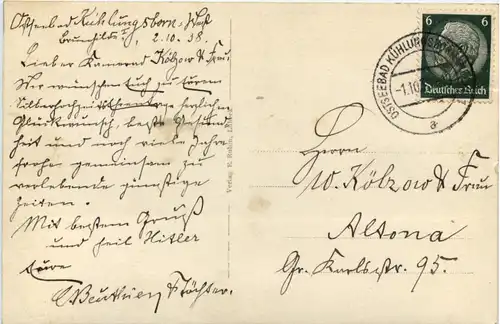 Ostseebad Kühlungsborn-West
Brunshilde 2.10.38.
Lieber Kamerad Kölzow & Frau
Wir wünschen Euch zu Eurem
Silberhochzeits herzlichen
Glückwunsch, beste Gesund
heit und noch viele Jahre
frohe gemeinsam zu
verlebende günstige
Zeiten.
Mit bestem Gruß
und heil Hitler
Eure
Töchter.
6 6
Deutsches Reich
OSTSEEBAD KÜHLUNGSBORN
-1.10
a
Verlag R.
Herrn
W. Kölzow & Frau
Altona
Gr. Karlstr. 95.